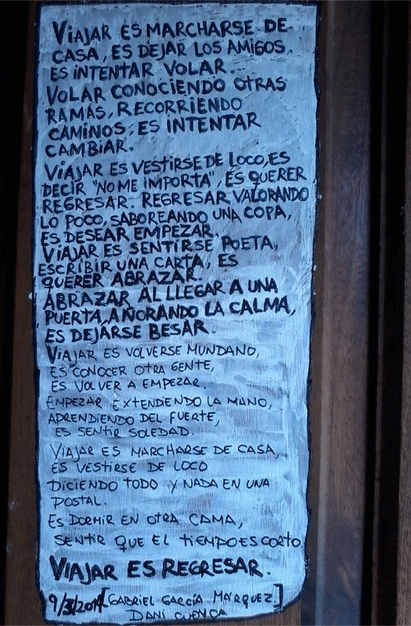 VIAJAR ES MARCHARSE DE
CASA, ES DEJAR LOS AMIGOS.
ES INTENTAR VOLAR.
VOLAR CONOCIENDO OTRAS
RAMAS, RECORRIENDO
CAMINOS, ES INTENTAR
CAMBIAR.
VIAJAR ES VESTIRSE DE LOCO, ES
DECIR "NO ME IMPORTA", ES QUERER
REGRESAR. REGRESAR VALORANDO
LO POCO, SABOREANDO UNA COPA,
ES DESEAR EMPEZAR.
VIAJAR ES SENTIRSE POETA,
ESCRIBIR UNA CARTA, ES
QUERER ABRAZAR.
ABRAZAR AL LLEGAR A UNA
PUERTA, AÑORANDO LA CALMA,
ES DEJARSE BESAR.
VIAJAR ES VOLVERSE MUNDANO,
ES CONOCER OTRA GENTE,
ES VOLVER A EMPEZAR.
EMPEZAR EXTENDIENDO LA MANO,
APRENDIENDO DEL FUERTE,
ES SENTIR SOLEDAD.
VIAJAR ES MARCHARSE DE CASA,
ES VESTIRSE DE LOCO
DICIENDO TODO Y NADA EN UNA
POSTAL.
ES DORMIR EN OTRA CAMA,
SENTIR QUE EL TIEMPO ES CORTO
VIAJAR ES REGRESAR.
[GABRIEL GARCÍA MÁRQUEZ]
DANI CUENCA